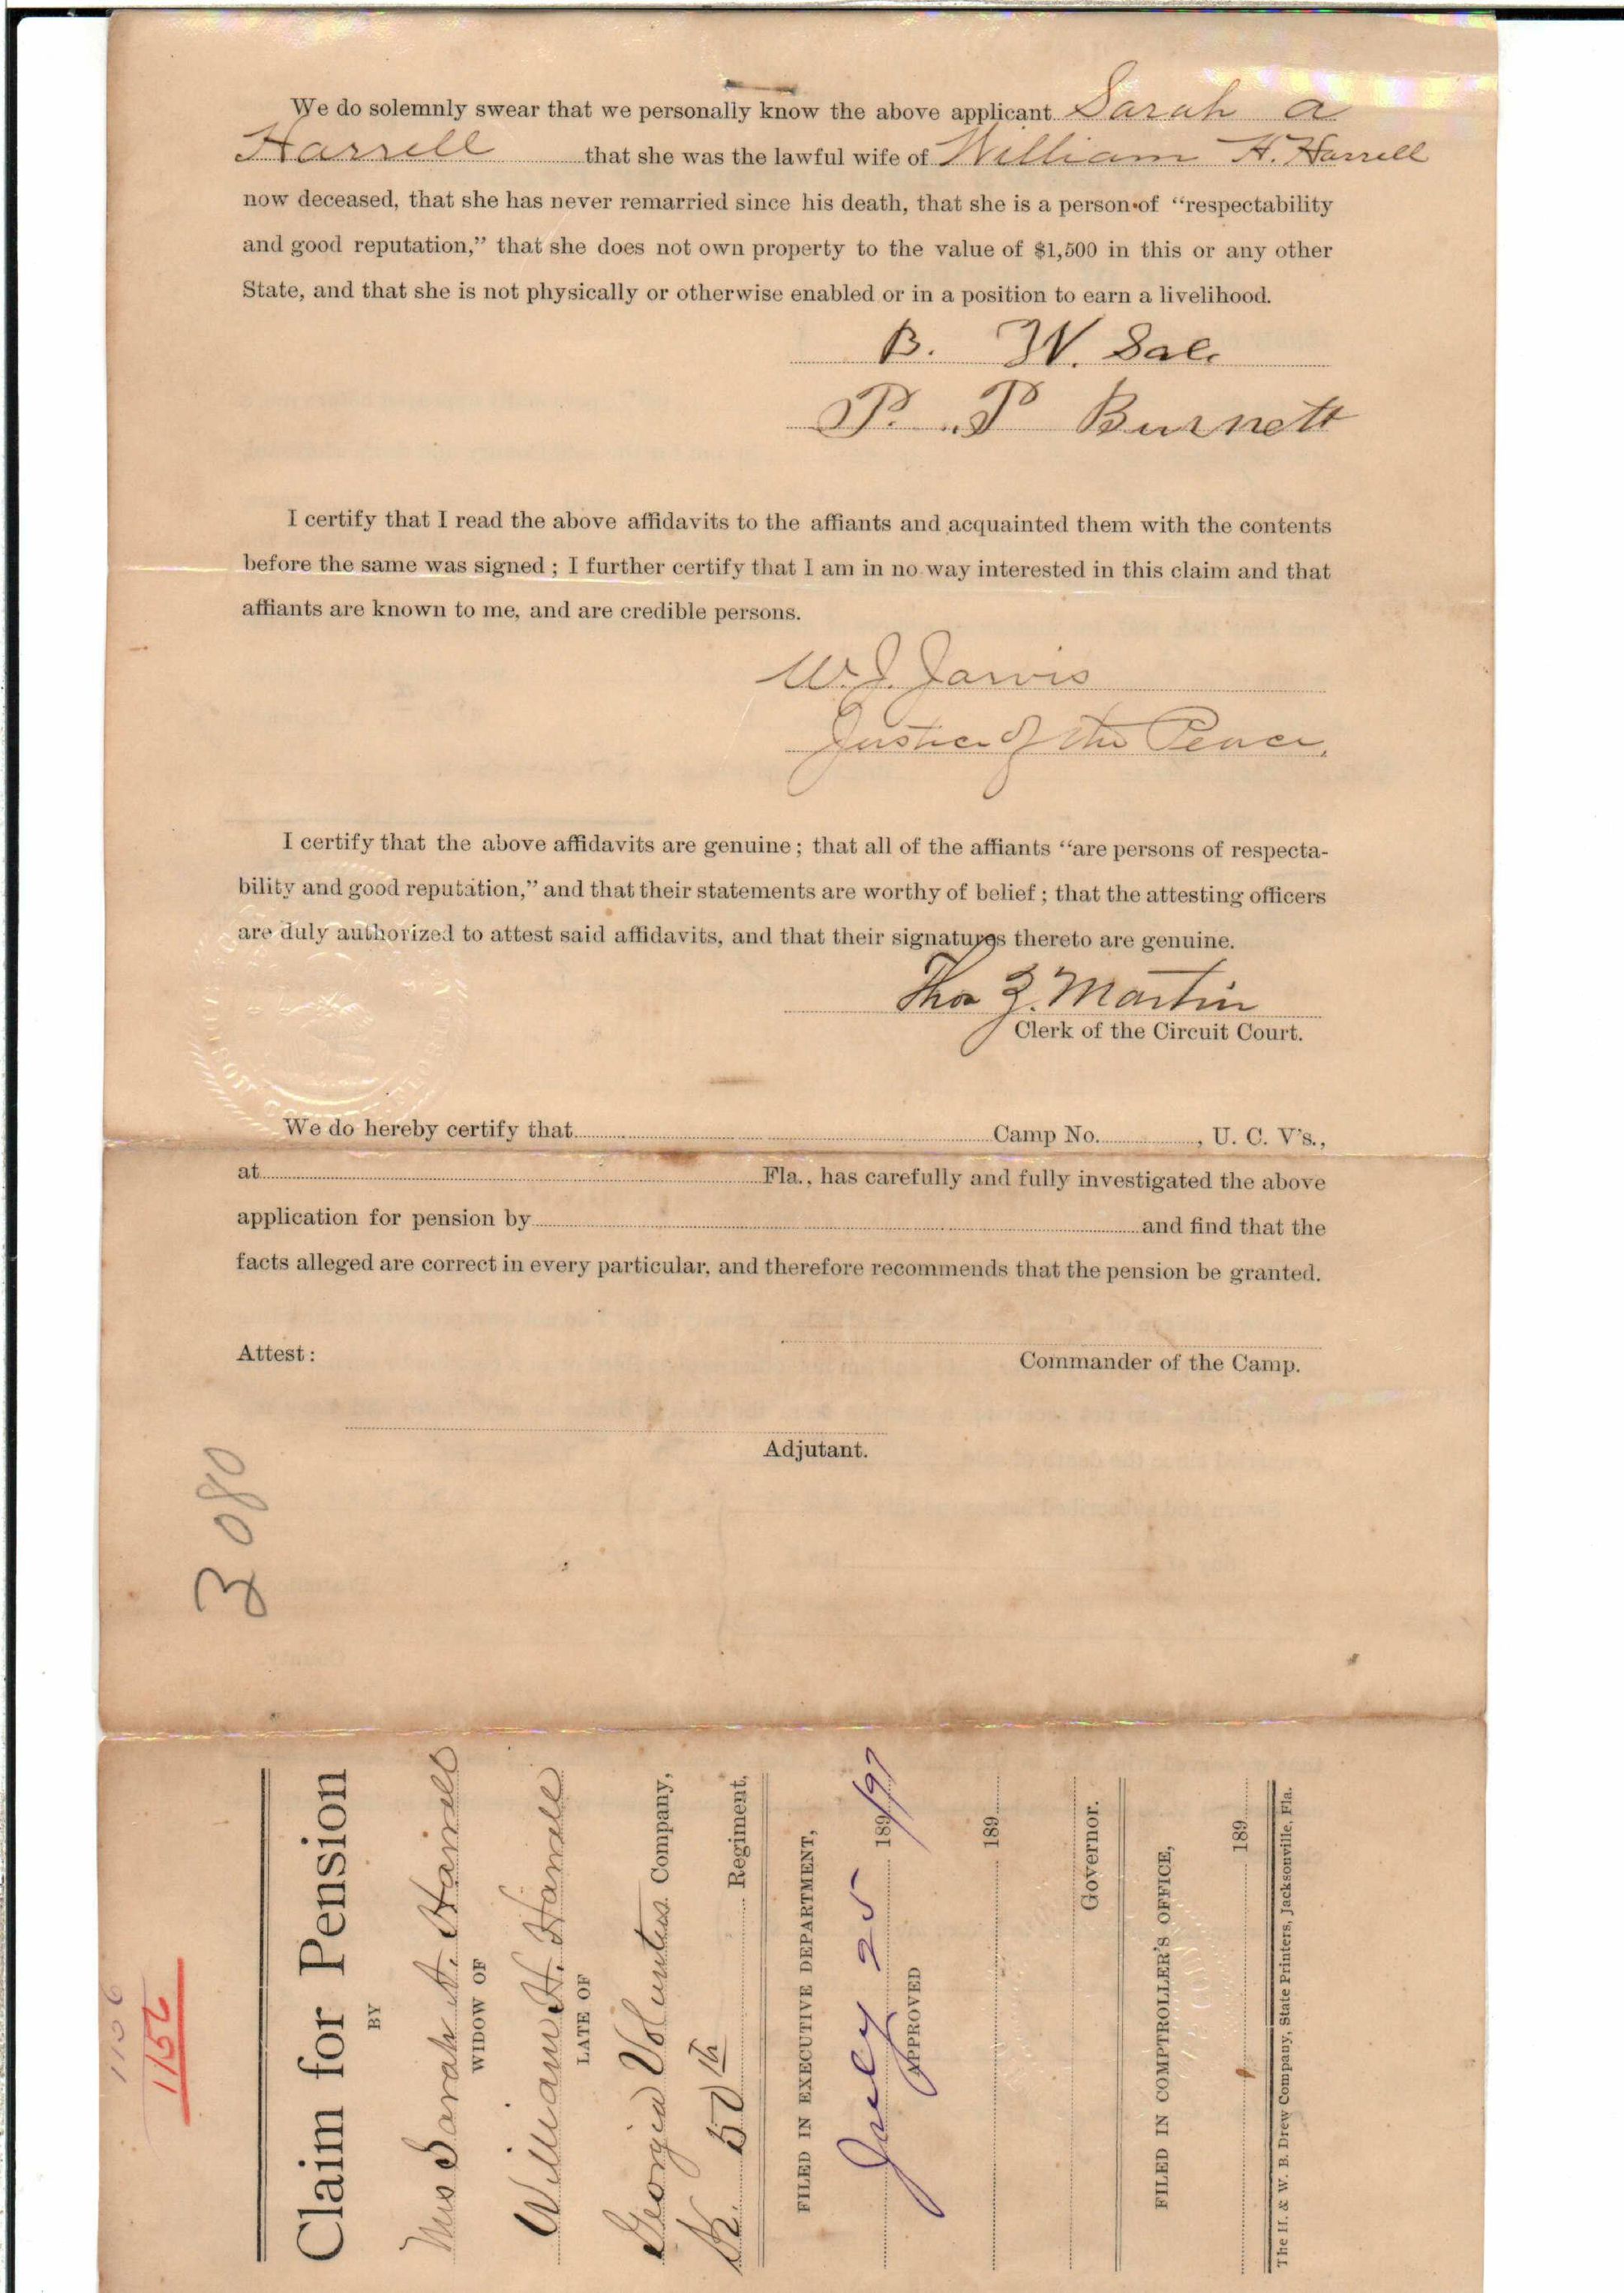 We do solemnly swear that we personally know the above applicant Sarah a
Harrell that she was the lawful wife of William H. Harrell
now deceased, that she has never remarried since his death, that she is a person of “respectability
and good reputation,” that she does not own property to the value of $1,500 in this or any other
State, and that she is not physically or otherwise enabled or in a position to earn a livelihood.
B. W. Sale
P. P Burnett
I certify that I read the above affidavits to the affiants and acquainted them with the contents
before the same was signed; I further certify that I am in no way interested in this claim and that
affiants are known to me, and are credible persons.
W. J. Jarvis
Justice of the Peace.
I certify that the above affidavits are genuine; that all of the affiants “are persons of respecta-
bility and good reputation,” and that their statements are worthy of belief; that the attesting officers
are duly authorized to attest said affidavits, and that their signatures thereto are genuine.
Thos Z. Martin
Clerk of the Circuit Court.
We do hereby certify that Camp No. , U. C. V's.,
at Fla., has carefully and fully investigated the above
application for pension by and find that the
facts alleged are correct in every particular, and therefore recommends that the pension be granted.
Attest:
Commander of the Camp.
Adjutant.
3080
1156
1156
Claim for Pension
BY
Mrs Sarah A. Harrell
WIDOW OF
William H. Harrell
LATE OF
Georgia Volunteers Company,
K. 50th Regiment.
FILED IN EXECUTIVE DEPARTMENT,
July 25 189/97
APPROVED
189
Governor.
FILED IN COMPTROLLER'S OFFICE,
189
The H. & W. B. Drew Company, State Printers, Jacksonville, Fla.